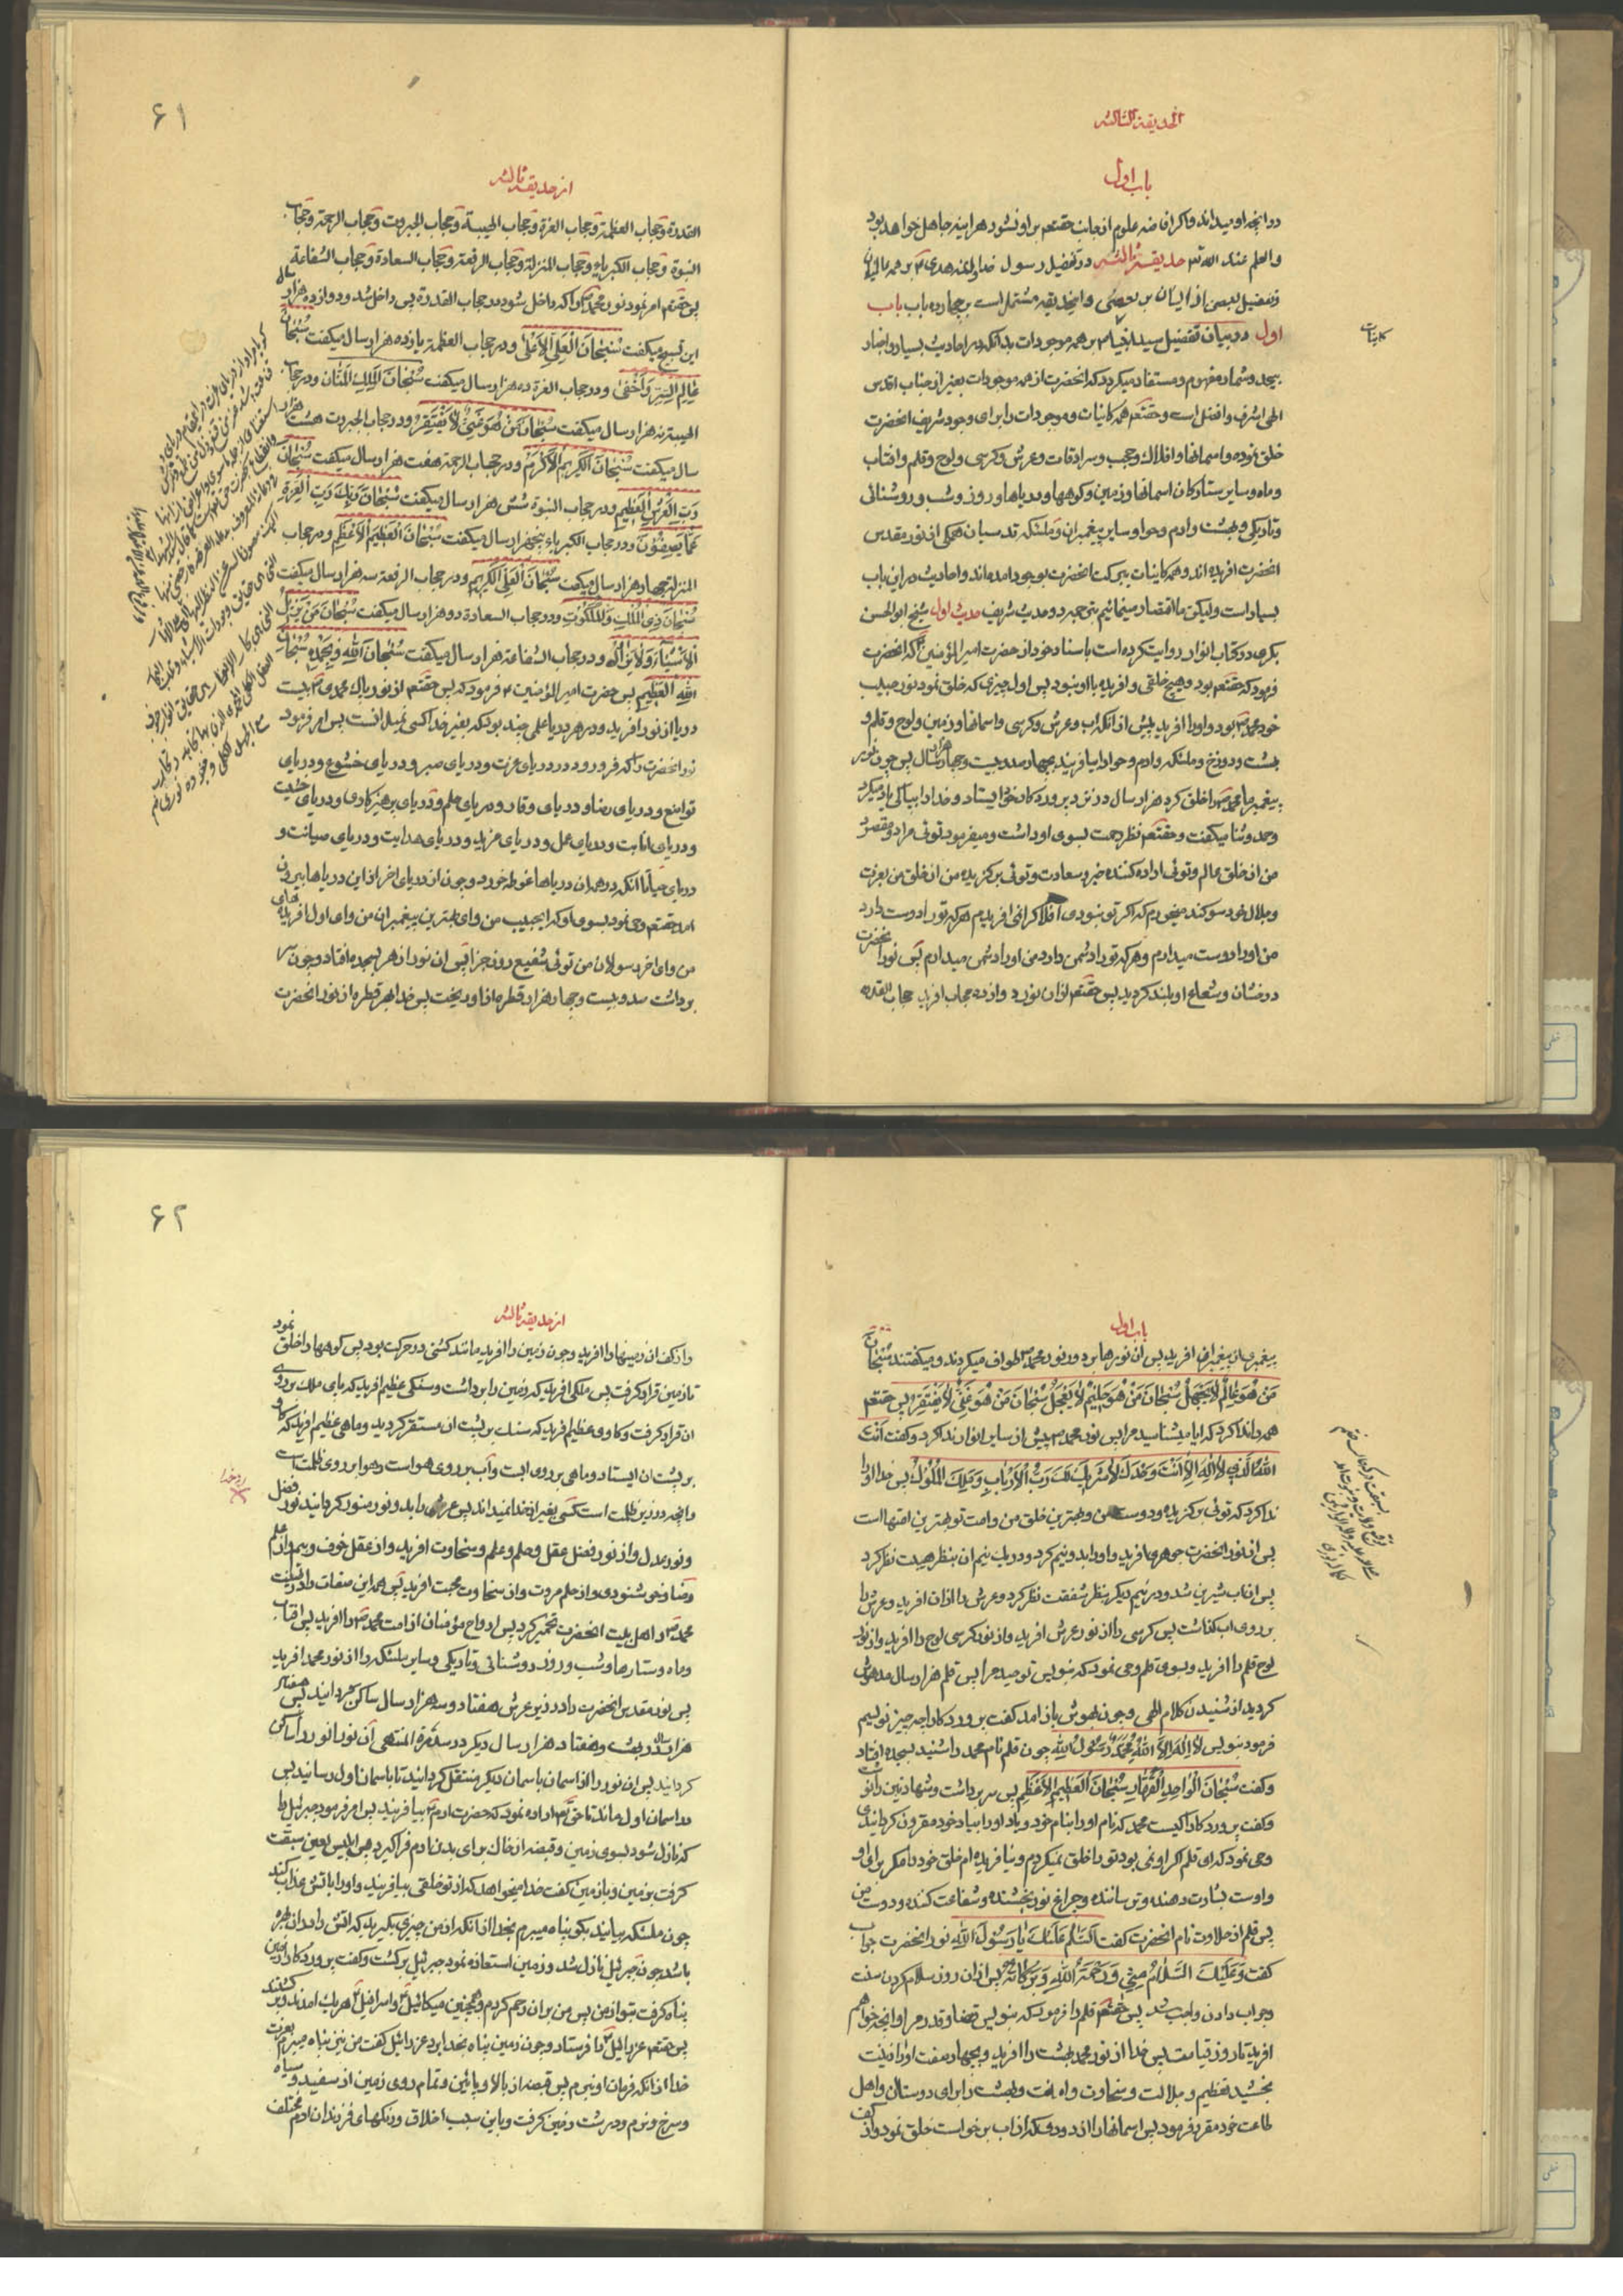 الحدیقة الثالثه
باب اول
در آنچه او میداند و اگر افاضه علوم از جانب حقتعم بر او نشود هر اینه جاهل خواهد بود
و العلم عند الله تم حدیقه ثالثه در تفضیل رسول خدا و ائمه هدی بر همه عالمیان
و تفضیل بعضی از ایشان بر بعضی و این حدیقه مشتمل است بر چهارده باب باب
اول در بیان تفضیل سید انبیا بر همه موجودات بدانکه در احادیث بسیار و اخبار
بیحد و شمار مفهوم و مستفاد میکردد که انحضرت از همه موجودات بغیر از جناب اقدس
الهی اشرف و افضل است و حقتعم همه کاینات و موجودات را برای وجود شریف انحضرت
خلق نموده و اسمانها و افلاک و حجب و سرادقات و عرش و کرسی و لوح و قلم و افتاب
و ماه و سایر ستارکان اسمانها و زمین و کوهها و دریاها و روز و شب و روشنائی
و تاریکی و بهشت و ادم و حوا و سایر پیغمبران و ملئکه قدسیان همکی از نور مقدس
انحضرت افریده اند و همه کاینات ببرکت انحضرت بوجود امده اند و احادیث در این باب
بسیار است و لیکن ما اقتصار مینمائیم حدیث اول شیخ ابو الحسن
بکری در کتاب انوار روایت کرده است باسناد خود از حضرت امیر المؤمنین که انحضرت
فرمود که حقتعم بود و هیچ خلقی و افریده با او نبود پس اول چیزی که خلق نمود نور حبیب
خود محمد بود و او را افرید پیش از انکه اب و عرش و کرسی و اسمانها و زمین و لوح و قلم و
بهشت و دوزخ و ملئکه و ادم و حوا را بیافریند بچهارصد و بیست و چهار هزار سال پس چون نور
پیغمبر ما محمد را خلق کرد هزار سال در نزد پروردکار خود ایستاد و خدا را بپاکی یاد میکرد
و حمد و ثنا میکفت و حقتعم نظر رحمت بسوی او داشت و میفرمود توئی مراد و مقصود
من از خلق عالم و توئی اراده کننده خیر و سعادت و توئی برکزیده من از خلق من بعزت
و جلال خود سوکند میخورم که اکر تو نبودی افلاک را نمی افریدم هر که تو را دوست دارد
من او را دوست میدارم و هر که تو را دشمن دارد من او را دشمن میدارم پس نور انحضرت
درخشان و شعاع او بلند کردید پس حقتعم از ان نور دوازده حجاب افرید حجاب القدره
کاینات
۶۱
از حدیقه ثالثه
القدرة و حجاب العظمة و حجاب العزة و حجاب الهیبة و حجاب الجبروت و حجاب الرحمة و حجاب
النبوة و حجاب الکبریاء و حجاب المنزلة و حجاب الرفعة و حجاب السعادة و حجاب الشفاعة
پس حقتعم امر نمود نور محمد را که داخل شود در حجاب القدرة پس داخل شد و دوازده هزار سال
این تسبیح میکفت سُبْحٰانَ الْعَلِیِّ الْاَعْلیٰ و در حجاب العظمة یازده هزار سال میکفت سُبْحٰانَ
عٰالِمِ السِّرِّ وَاَخْفیٰ و در حجاب العزة ده هزار سال میکفت سُبْحٰانَ الْمَلِکِ الْمَنّٰانِ و در حجاب
الهیبة نه هزار سال میکفت سُبْحٰانَ مَنْ هُوَ غَنِیٌّ لٰا یَفْتَقِرُ و در حجاب الجبروت هشت هزار
سال میکفت سُبْحٰانَ الْکَرِیمِ الْاَکْرَمِ و در حجاب الرحمة هفت هزار سال میکفت سُبْحٰانَ
رَبِّ الْعَرْشِ الْعَظِیمِ و در حجاب النبوة شش هزار سال میکفت سُبْحٰانَ رَبِّکَ رَبِّ الْعِزَّةِ
عَمّٰا یَصِفُونَ و در حجاب الکبریاء پنجهزار سال میکفت سُبْحٰانَ الْعَظِیمِ الْاَعْظَمِ و در حجاب
المنزلة چهار هزار سال میکفت سُبْحٰانَ الْعَلِیِّ الْکَرِیمِ و در حجاب الرفعة سه هزار سال میکفت
سُبْحٰانَ ذِی الْمُلْکِ وَالْمَلَکُوتِ و در حجاب السعادة دو هزار سال میکفت سُبْحٰانَ مَنْ یُزِیلُ
الْاَشْیٰآءَ وَ لٰا یُزٰالُ و در حجاب الشفاعة هزار سال میکفت سُبْحٰانَ اللّٰهِ وَ بِحَمْدِهِ سُبْحٰانَ
اللّٰهِ الْعَظِیمِ پس حضرت امیر المؤمنین فرمود که پس حقتعم از نور پاک محمدی بیست
دریا از نور افرید و در هر دریا علمی چند بود که بغیر خدا کسی نمیدانست پس امر فرمود
نور انحضرت را که فرو رود در دریای عزت و دریای صبر و دریای خشوع و دریای
تواضع و دریای رضا و دریای وفا و دریای حلم و دریای پرهیزکاری و دریای خشیت
و دریای انابت و دریای عمل و دریای مزید و دریای هدایت و دریای صیانت و
دریای حیا تا انکه در همه ان دریاها غوطه خورد و چون از دریای اخر از این دریاها بیرون
امد حقتعم وحی نمود بسوی او که ایحبیب من و ای بهترین پیغمبران من و ای اول افریده های
من و ای اخر رسولان من توئی شفیع روز جزا پس ان نور ازهر بسجده افتاد و چون سر
برداشت صد و بیست و چهار هزار قطره از او ریخت پس خدا بهر قطره از نور انحضرت
باب اول
پیغمبری از پیغمبران افرید پس ان نورها بر دور نور محمد طواف میکردند و میکفتند سُبْحٰانَ
مَنْ هُوَ عٰالِمٌ لٰا یَجْهَلُ سُبْحٰانَ مَنْ هُوَ حَلِیمٌ لٰا یَعْجَلُ سُبْحٰانَ مَنْ هُوَ غَنِیٌّ لٰا یَفْتَقِرُ پس حقتعم
همه را ندا کرد که ایا میشناسید مرا پس نور محمد پیش از سایر انوار ندا کرد و کفت اَنْتَ
اللّٰهُ الَّذِی لٰا اِلٰهَ اِلّٰا اَنْتَ وَحْدَکَ لٰا شَرِیکَ لَکَ رَبُّ الْاَرْبٰابِ وَ مَلِکُ الْمُلُوکِ پس خدا او را
ندا کرد که توئی برکزیده و دوست من و بهترین خلق من و امت تو بهترین امتها است
پس از نور انحضرت جوهری افرید و او را بدو نیم کرد و در یک نیم ان بنظر هیبت نظر کرد
پس ان اب شیرین شد و در نیم دیکر بنظر شفقت نظر کرد و عرش را از ان افرید و عرش را
بر روی اب کذاشت پس کرسی را از نور عرش افرید و از نور کرسی لوح را افرید و از نور
لوح قلم را افرید و بسوی قلم وحی نمود که بنویس توحید مرا پس قلم هزار سال مدهوش
کردید از شنیدن کلام الهی و چون بهوش باز امد کفت پروردکارا چه چیز نویسم
فرمود بنویس لٰا اِلٰهَ اِلَّا اللّٰهُ مُحَمَّدٌ رَسُولُ اللّٰهِ چون قلم نام محمد را شنید بسجده افتاد
و کفت سُبْحٰانَ الْوٰاحِدِ الْقَهّٰارِ سُبْحٰانَ الْعَظِیمِ الْاَعْظَمِ پس سر برداشت و شهادتین را نوشت
و کفت پروردکارا کیست محمد که نام او را بنام خود و یاد او را بیاد خود مقرون کردانیدی
وحی نمود که ای قلم اکر او نمی بود تو را خلق نمیکردم و نیافریده ام خلق خود را مکر برای او
و اوست بشارت دهنده و ترساننده و چراغ نور بخشنده و شفاعت کننده و دوست من
پس قلم از حلاوت نام انحضرت کفت اَلسَّلٰامُ عَلَیْکَ یٰا رَسُولَ اللّٰهِ نور انحضرت جواب
کفت وَ عَلَیْکَ السَّلٰامُ مِنِّی وَ رَحْمَةُ اللّٰهِ وَ بَرَکٰاتُهُ پس از ان روز سلام کردن سنت
و جواب دادن واجب شد پس حقتعم قلم را فرمود که بنویس قضا و قدر مرا و انچه خواهم
افرید تا روز قیامت پس خدا از نور محمد بهشت را افرید و بچهار صفت او را زینت
بخشید تعظیم و جلالت و سخاوت و امانت و بهشت را برای دوستان و اهل
طاعت خود مقرر فرمود پس اسمانها را از دودی که از اب برخواست خلق نمود و از کف
۶۲
از حدیقه ثالثه
و از کف ان زمینها را افرید و چون زمین را افرید مانند کشتی در حرکت بود پس کوهها را خلق نمود
تا زمین قرار کرفت پس ملکی افرید که زمین را برداشت و سنکی عظیم افرید که پای ملک بر روی
ان قرار کرفت و کاوی عظیم افرید که سنک بر پشت ان مستقر کردید و ماهی عظیم افرید که کاو
بر پشت ان ایستاد و ماهی بر روی ابست و اب بر روی هواست و هوا بر روی ظلمت است
و انچه در زیر ظلمت است کسی بغیر از خدا نمیداند پس عرش را بدو نور منور کردانید نور فضل
و نور عدل و از نور فضل عقل و حلم و علم و سخاوت افرید و از عقل خوف و بیم و از علم
رضا و خوشنودی و از حلم مروت و از سخاوت محبت افرید پس همه این صفات را در طینت
محمد و اهل بیت انحضرت تخمیر کرد پس ارواح مؤمنان از امت محمد را افرید پس افتاب
و ماه و ستارها و شب و روز و روشنائی و تاریکی و سایر ملئکه را از نور محمد افرید
پس نور مقدس انحضرت را در زیر عرش هفتاد و سه هزار سال ساکن کردانید پس هفتاد
هزار سال در بهشت و هفتاد هزار سال دیکر در سدرة المنتهی ان نور انور را ساکن
کردانید پس ان نور را از اسمان باسمان دیکر منتقل کردانید تا باسمان اول رسانید پس
در اسمان اول ماند تا حقتعم اراده نمود که حضرت ادم بیافریند پس امر فرمود جبرئیل را
که نازل شود بسوی زمین و قبضه از خاک برای بدن ادم فراکیرد پس ابلیس لعین سبقت
کرفت بزمین و با زمین کفت خدا میخواهد که از تو خلقی بیافریند و او را باتش عذاب کند
چون ملئکه بیایند بکو پناه میبرم بخدا از انکه از من چیزی بکیرید که اتش را در ان بهره
باشد چون جبرئیل نازل شد و زمین استعاذه نمود جبرئیل برکشت و کفت پروردکارا زمین
پناه کرفت بتو از من پس من بر ان رحم کردم و همچنین میکائیل و اسرافیل هر یک امدند و برکشتند
پس حقتعم عزرائیل را فرستاد و چون زمین پناه بخدا برد عزرائیل کفت من نیز پناه میبرم بعزت
خدا از انکه فرمان او نبرم پس قبضه از بالا و پائین و تمام روی زمین از سفید و سیاه
و سرخ و نرم و درشت زمین کرفت و باین سبب اخلاق و رنکهای فرزندان ادم مختلف